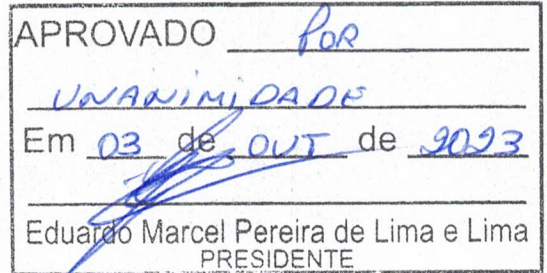 APROVADO POR
UNANIMIDADE
Em 03 de OUT de 2023
Eduardo Marcel Pereira de Lima e Lima
PRESIDENTE